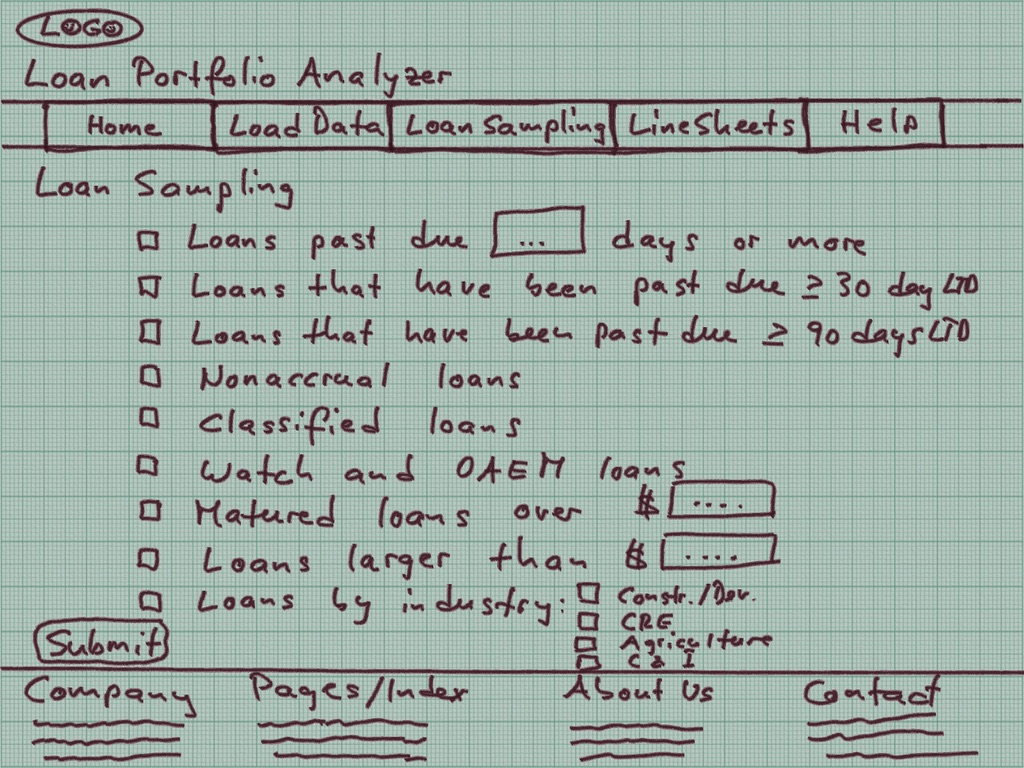 LOGO
Loan Portfolio Analyzer
Home Load Data Loan Sampling LineSheets Help
Loan Sampling
Loans past due ... days or more
Loans that have been past due ≥ 30 day LTD
Loans that have been past due ≥ 90 days LTD
Nonaccrual loans
Classified loans
Watch and OAEM loans
Matured loans over $ ....
Loans larger than $ ....
Loans by industry: Constr./Dev.
CRE
Agriculture
C & I
Submit
Company Pages/Index About Us Contact